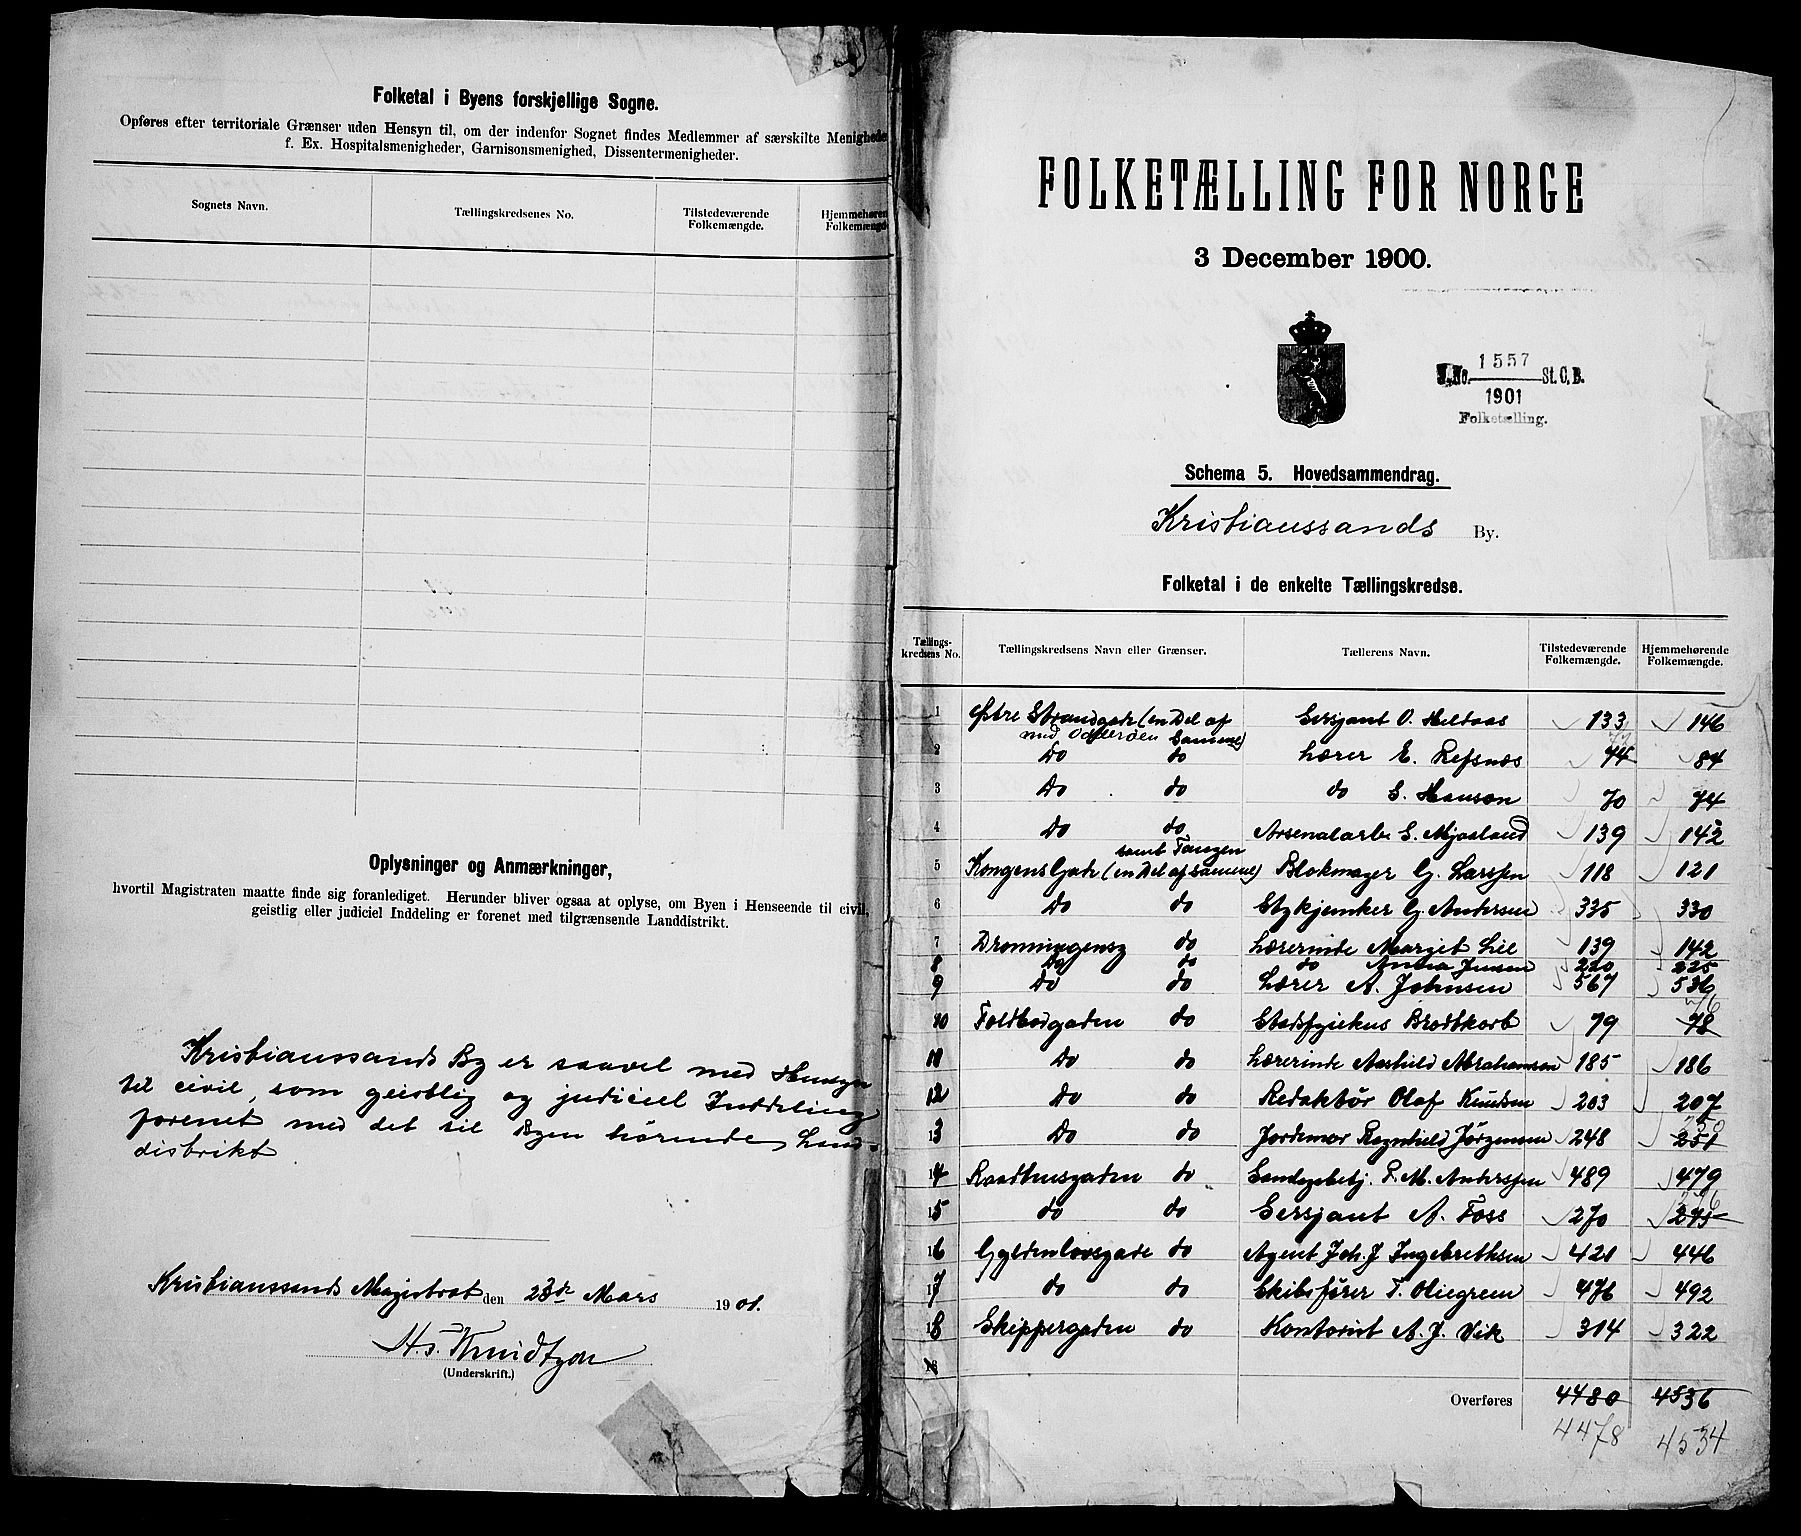 Folketal i Byens forskjellige Sogne.
Opføres efter territoriale Grænser uden Hensyn til, om der indenfor Sognet findes Medlemmer af særskilte Menighede
f. Ex. Hospitalsmenigheder, Garnisonsmenighed, Dissentermenigheder.
Sognets Navn.
Tællingskredsenes No.
Tilstedeværende Folkemængde.
Hjemmehøren Folkemængd
Oplysninger og Anmærkninger,
hvortil Magistraten maatte finde sig foranlediget. Herunder bliver ogsaa at oplyse, om Byen i Henseende til civil,
geistlig eller judiciel Inddeling er forenet med tilgrænsende Landdistrikt.
Kristianssands By er saavel med Hensyn
til civil, som geistlig og judiciel Inddeling
forenet med det til Byen hørende Land-
distrikt
Kristianssands Magistrat den 23de Mars 1901.
Hs. Knudtzon
(Underskrift.)
FOLKETÆLLING FOR NORGE
3 December 1900.
J. No. 1557 St. C. B.
1901
Folketælling.
Schema 5. Hovedsammendrag.
Kristianssands By.
Folketal i de enkelte Tællingskredse.
Tællings-kredsens No.
Tællingskredsens Navn eller Grænser.
Tællerens Navn.
Tilstedeværende Folkemængde.
Hjemmehørende Folkemængde.
1 Østre Strandgade (en Del af Sersjant O. Heltaas 133 146
med Odderøen Samme)
2 Do do Lærer E. Refsnæs 74 84
3 Do do do S. Hanson 70 74
4 Do do Arsenalarb. S. Mjaaland 139 142
samt Tangen
5 Kongens Gade (en Del af Samme) Blokmager G. Larssen 118 121
6 Do do Stykjunker G. Andersen 335 330
7 Dronningensg do Lærerinde Margit Lie 139 142
8 Do do do Anna Jensen 220 225
9 Do do Lærer A. Johnsen 567 536
76
10 Toldbodgaden do Stadsfysikus Brodtkorb 79 78
11 Do do Lærerinde Aashild Abrahamsen 185 186
12 Do do Redaktør Olaf Knudsen 203 207
250
13 Do do Jordemor Ragnhild Jørgensen 248 251
14 Raadhusgaden do P. M. Anderssen 489 479
276
15 do do Sersjant A. Foss 270 275
16 Gyldenløvsgade do Agent Joh. J. Ingebrethsen 421 446
17 do do Skibsfører T. Oliegreen 476 492
18 Skippergaden do Kontorist A. J. Vik 314 322
18
Overføres 4480 4536
4478 4534